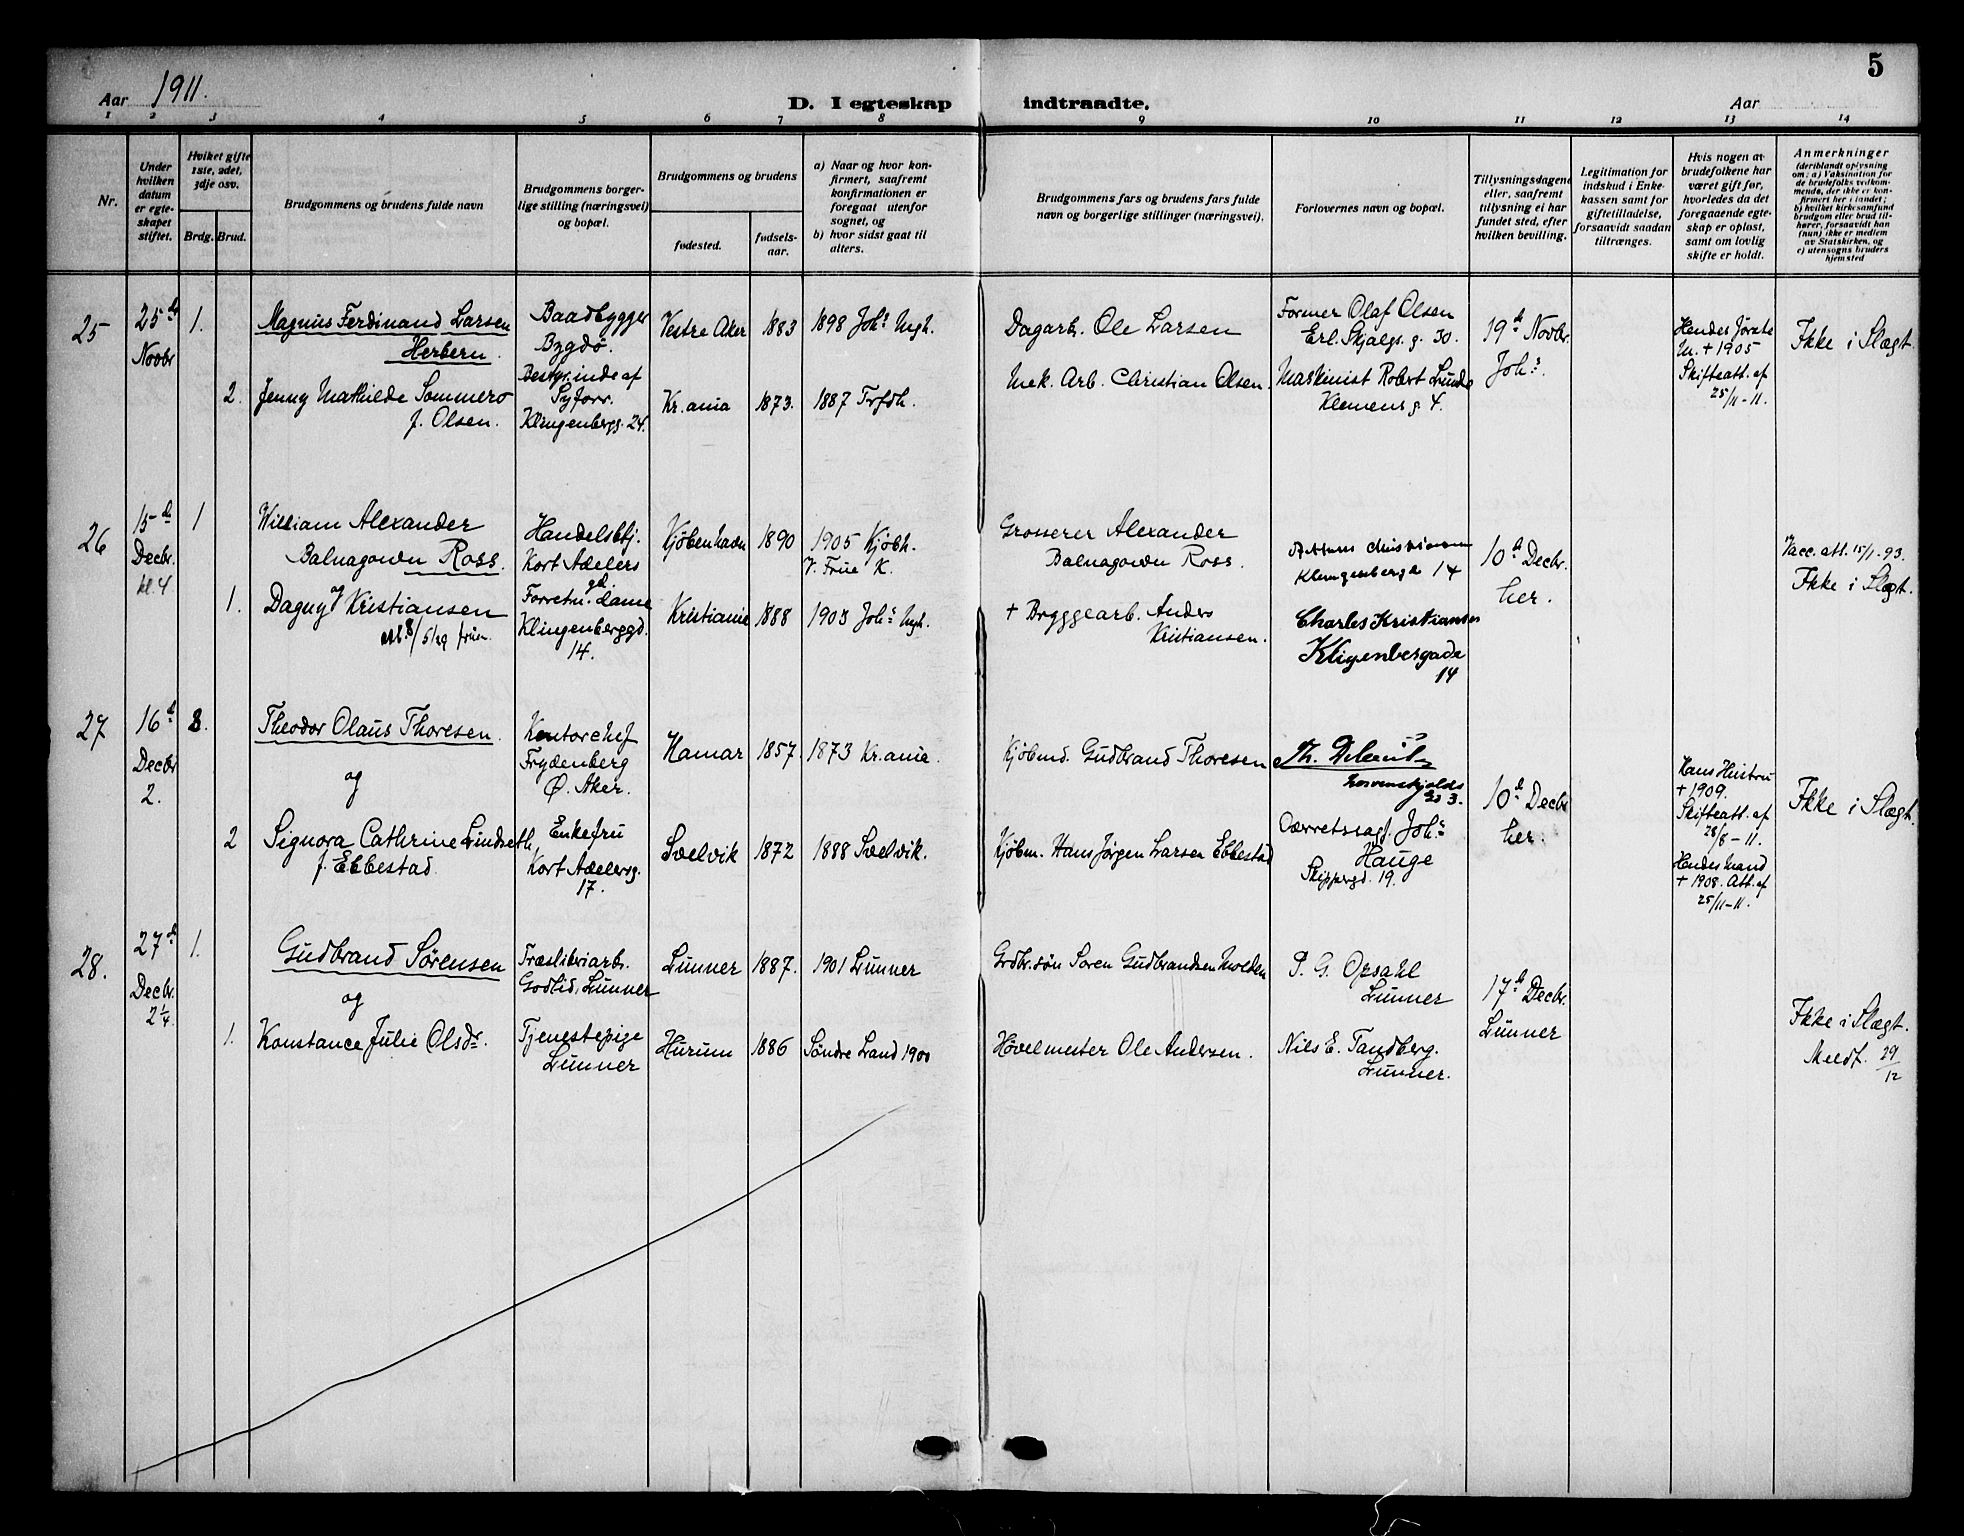 5
Aar 1911.
D. I egteskap indtraadte.
Aar
1 2 3 4 5 6 7 8 9 10 11 12 13 14
Nr.
Under hvilken datum er egteskapet stiftet.
Hviket gifte 1ste, 2det, 3dje osv.
Brdg. Brud.
Brudgommens og brudens fulde navn
Brudgommens borgerlige stilling (næringsvei) og bopæl.
Brudgommens og brudens
fødested.
fødselsaar.
a) Naar og hvor konfirmert, saafremt konfirmationen er foregaat utenfor sognet, og
b) hvor sidst gaat til alters.
Brudgommens fars og brudens fars fulde navn og borgerlige stillinger (næringsvei).
Forlovernes navn og bopæl.
Tillysningsdagene eller, saafremt tillysning ei har fundet sted, efter hvilken bevilling.
Legitimation for indskud i Enkekassen samt for giftetilladelse, forsaavidt saadan tiltrænges.
Hvis nogen av brudefolkene har været gift før, hvorledes da det foregaaende egteskap er opløst, samt om lovlig skifte er holdt.
Anmerkninger (deriblandt oplysning om: a) Vaksination for de brudefolks vedkommende, der ikke er konfirmert her i landet; b) hvilket kirkesamfund brudgom eller brud tilhører, forsaavidt han (hun) ikke er medlem av Statskirken, og c) utensogns bruders hjemsted
25
25de Novbr
1.
Magnus Ferdinand Larsen
Herbern.
Baadbygger
Bygdø.
Vestre Aker
1883
1898 Johs Mgh.
Dagarb. Ole Larsen
Former Olaf Olsen
Erl. Skjalgs. g. 30.
19de Novbr.
Johs.
Hendes første
M. + 1905
Skifteatt. af
25/11-11.
Ikke i Slægt.
2.
Jenny Mathilde Sommero
f. Olsen.
Bestyr.inde af
Syforr.
Klingenbergg. 24.
Kr.ania
1873.
1887 Trfdh.
Mek. Arb. Christian Olsen.
Maskinist Robert Lunde
Klemens g. 4.
26
15de
Decbr.
kl. 4
1
William Alexander
Balnagown Ross.
Handelsbtj.
Kort Adelers
gd.
Kjøbenhavn
1890
1905 Kjøbh.
V. Frue K.
Grosserer Alexander
Balnagown Ross.
Klingenbergd 14
10de Decbr.
her.
Vacc. att. 15/1-93.
Ikke i Slægt.
og
1.
Dagny Kristiansen
Forretn. dame
Klingenberggd.
14.
Kristiania
1888
1903 Johs Mgh.
+ Bryggearb. Anders
Kristiansen.
Charles Kristiansen
Kligenbergade
14
27
16de
Decbr
2.
Theodor Olaus Thoresen.
og
Kontorchef
Frydenberg
Ø. Aker.
Hamar
1857.
1873 Kr.ania.
Kjøbmd. Gudbrand Thoresen
3.
10de Decbr
her.
Hans Hustru
+ 1909.
Skifteatt. af
28/8-11.
Hendes Mand
+ 1908. Att. af
25/11-11.
Ikke i Slægt.
2
Signora Cathrine Lindseth
f. Ebbestad.
Enkefru
Kort Adelersg.
17.
Svelvik
1872
1888 Svelvik.
Kjøbm. Hans Jørgen Larsen Ebbestad
Overretssagf. Johs
Hauge
Skippergd. 19.
28.
27de
Decbr.
2¼.
1.
Gudbrand Sørensen
og
Træsliberiarb.
Godlid, Lunner
Lunner
1887.
1901 Lunner
Grdbr.søn Søren Gudbrandsen Molden
P. G. Opsahl
Lunner
17de Decbr.
Lunner
Ikke i Slægt.
Meldt. 29/12
1.
Konstance Julie Olsdr.
Tjenestepige
Lunner
Hurum
1886
Søndre Land 1900
Høvelmester Ole Andersen.
Nils E. Tandberg.
Lunner.